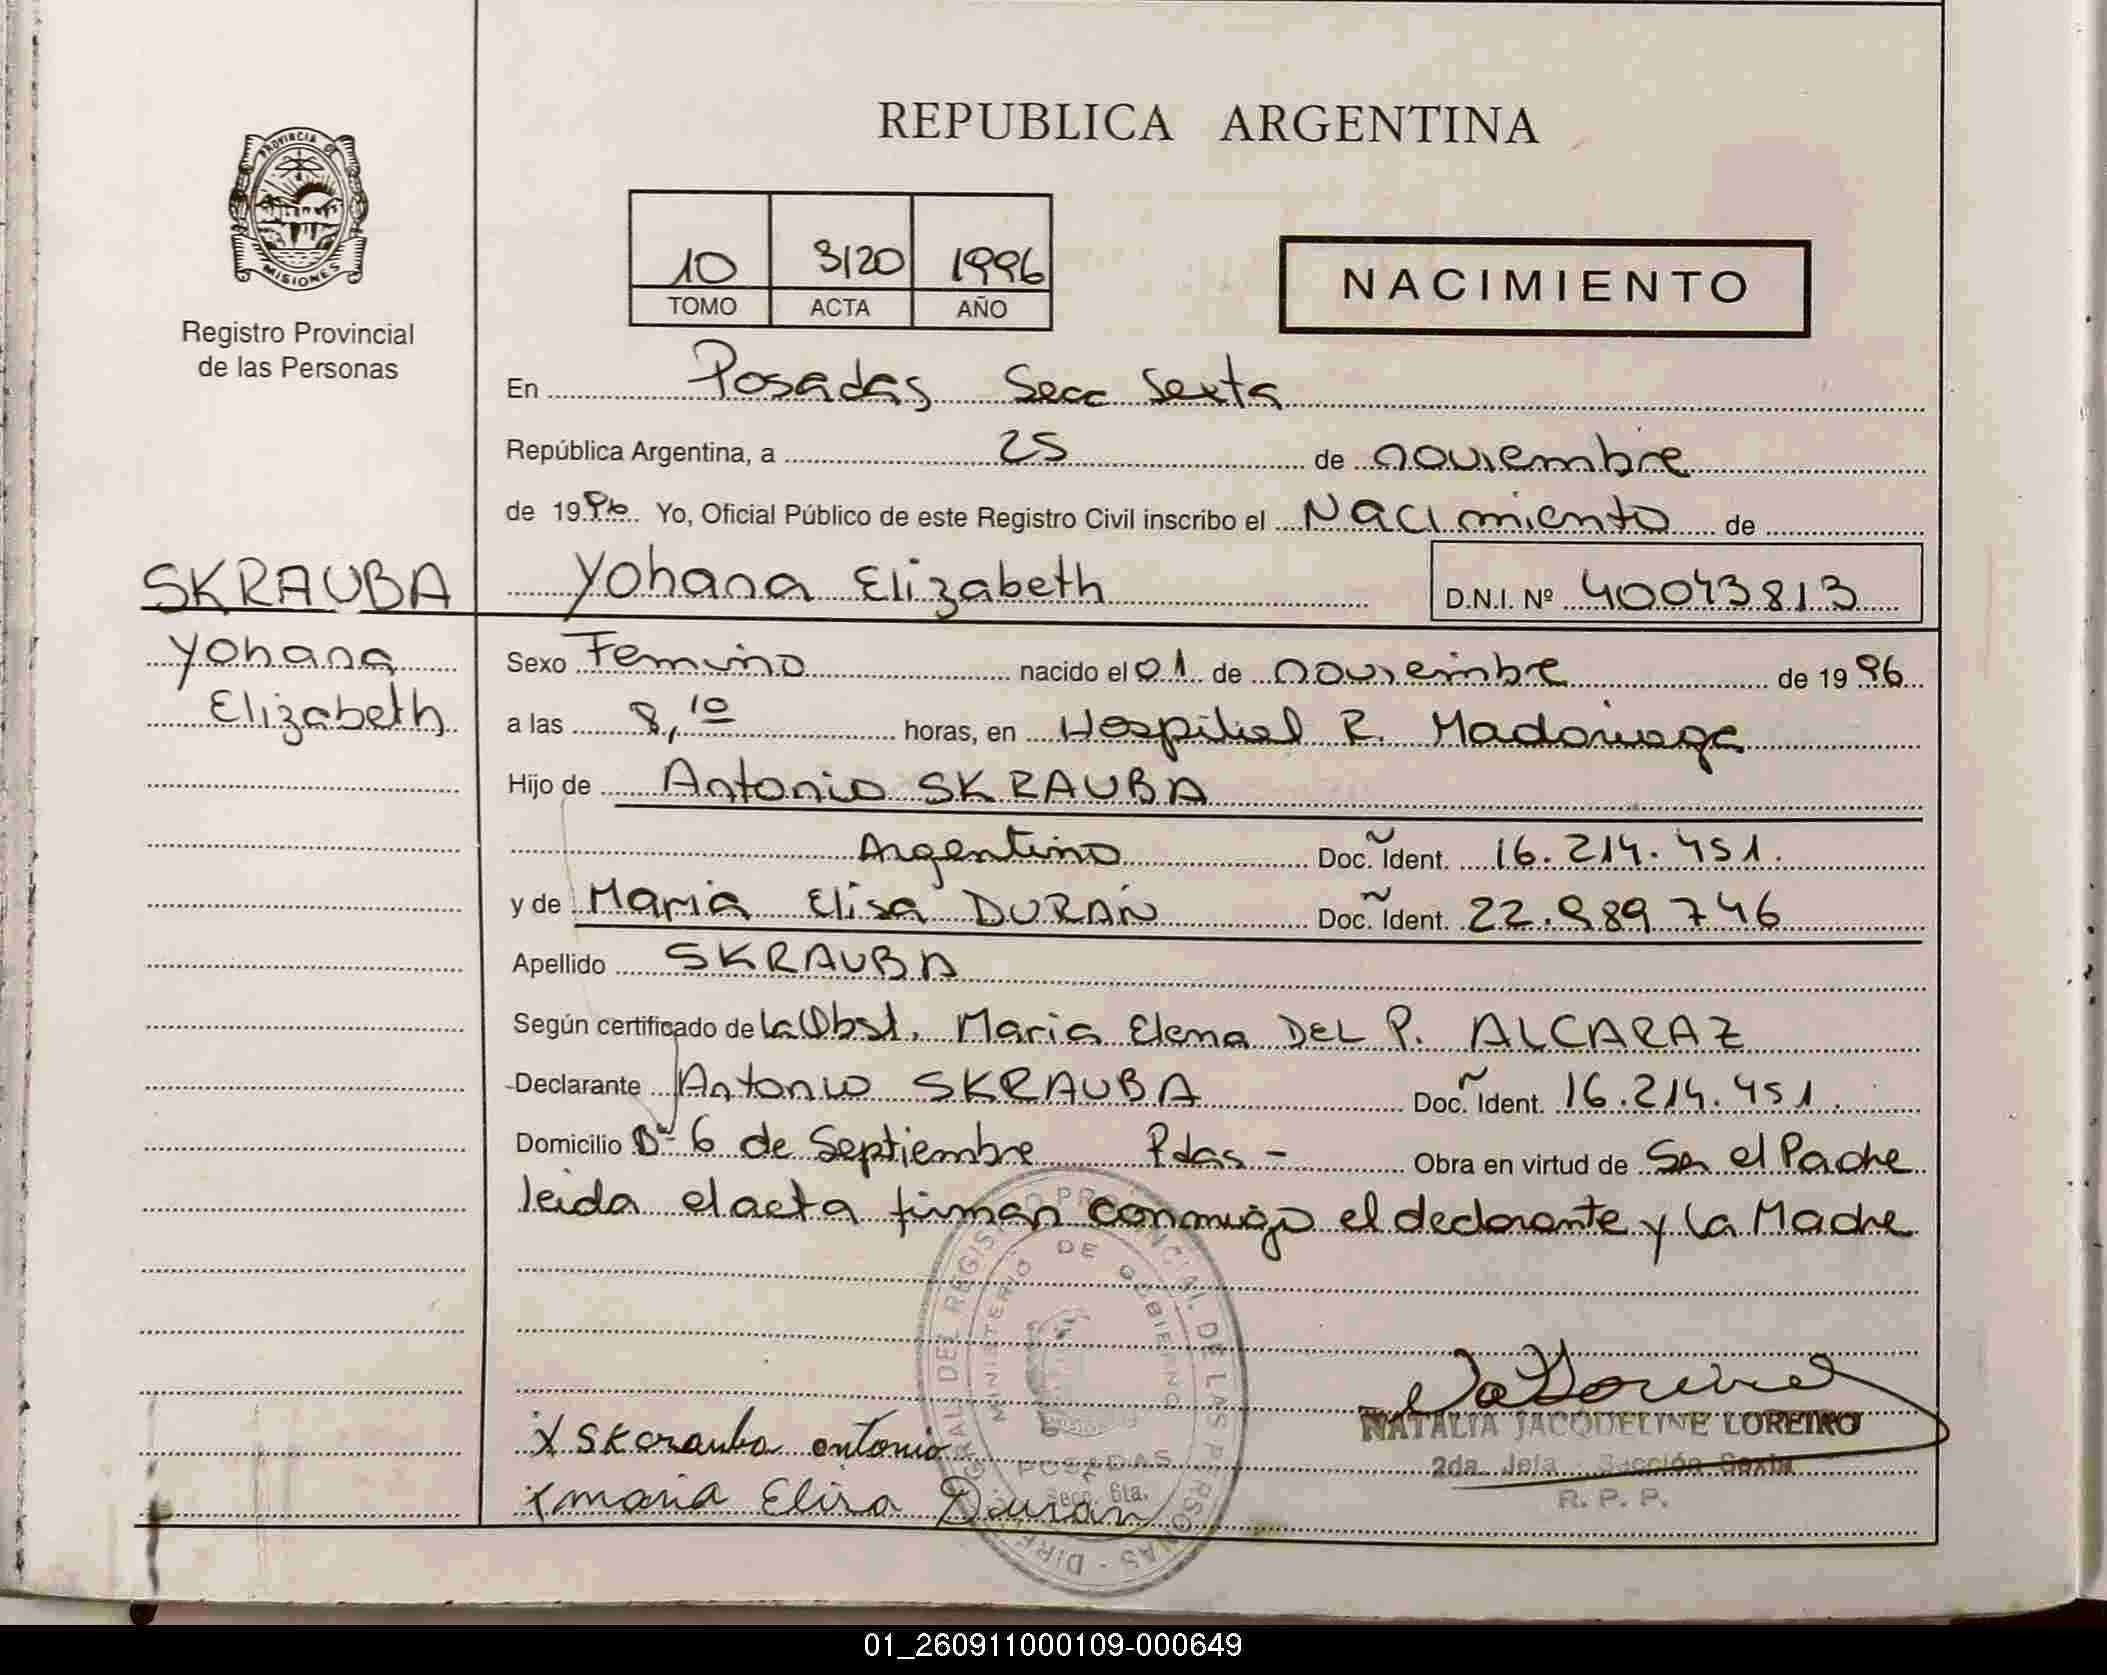 REPUBLICA ARGENTINA
PROVINCIA DE
MISIONES
Registro Provincial
de las Personas
10 3120 1996
TOMO ACTA AÑO
NACIMIENTO
En Posadas Secc Sexta
República Argentina, a 25 de noviembre
de 1996 Yo, Oficial Público de este Registro Civil inscribo el Nacimiento de
SKRAUBA
Yohana Elizabeth D.N.I. Nº 40043813
Yohana
Elizabeth
Sexo Femenino nacido el 01 de noviembre de 1996
a las 8,10 horas, en Hospital R. Madariaga
Hijo de Antonio SKRAUBA
Argentino Doc. Ident. 16.214.451.
y de Maria Elisa DURAN Doc. Ident. 22.989.746
Apellido SKRAUBA
Según certificado de la Obst. Maria Elena DEL P. ALCARAZ
Declarante Antonio SKRAUBA Doc. Ident. 16.214.451.
Domicilio Bº 6 de Septiembre Pdas - Obra en virtud de Ser el Padre
leida el acta firman conmigo el declarante y la Madre
MINISTERIO DE GOBIERNO
POSADAS
Secc. 6ta.
X Skrauba antonio
X maria Elisa Duran
NATALIA JACQUELINE LOREIRO
2da. Jefa Sección Sexta
R. P. P.
01_260911000109-000649